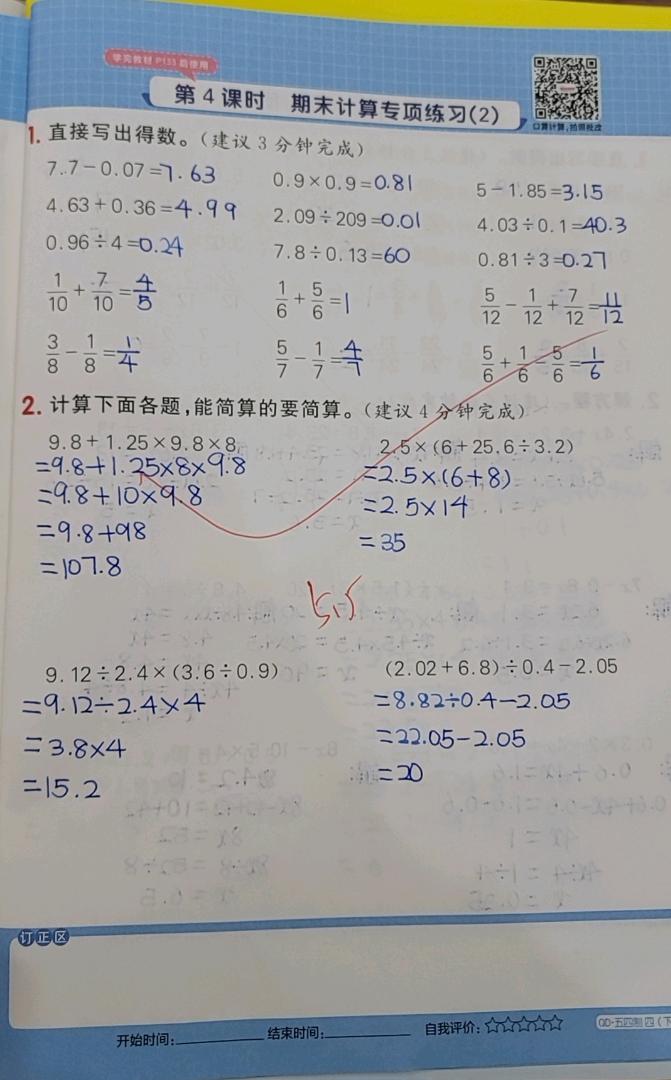 学完教材 P133 后使用
第4课时 期末计算专项练习(2)
口算计算,拍照批改
1. 直接写出得数。(建议3分钟完成)
7.7-0.07=7.63 0.9×0.9=0.81 5-1.85=3.15
4.63+0.36=4.99 2.09÷209=0.01 4.03÷0.1=40.3
0.96÷4=0.24 7.8÷0.13=60 0.81÷3=0.27
1/10+7/10=4/5 1/6+5/6=1 5/12-1/12+7/12=11/12
3/8-1/8=1/4 5/7-1/7=4/7 5/6+1/6-5/6=1/6
2. 计算下面各题,能简算的要简算。(建议4分钟完成)
9.8+1.25×9.8×8 2.5×(6+25.6÷3.2)
=9.8+1.25×8×9.8 =2.5×(6+8)
=9.8+10×9.8 =2.5×14
=9.8+98 =35
=107.8
9.12÷2.4×(3.6÷0.9) (2.02+6.8)÷0.4-2.05
=9.12÷2.4×4 =8.82÷0.4-2.05
=3.8×4 =22.05-2.05
=15.2 =20
订正区
开始时间: 结束时间: 自我评价:☆☆☆☆☆
QD·五四制 四(下